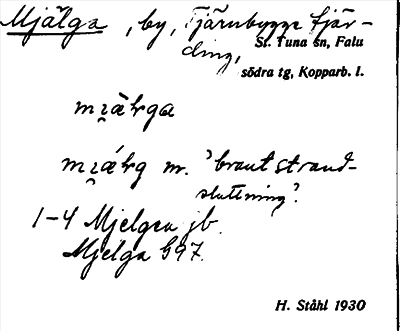 Mjälga, by, Tjärnbygge fjär-
ding,
St. Tuna sn, Falu
södra tg, Kopparb. l.
mi̯àłrga
mi̯áłrg m. 'brant strand-
sluttning'.
1-4 Mjelgen jb.
Mjelga G97.
H. Ståhl 1930